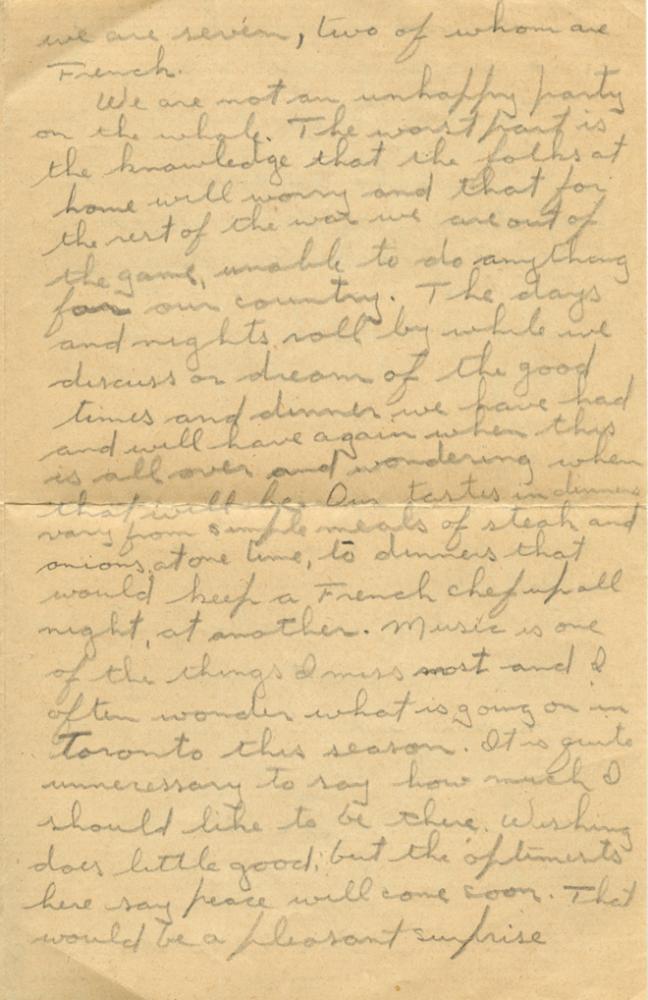 we are seven, two of whom are
French.
We are not an unhappy party
on the whole. The worst part is
the knowledge that the folks at
home will worry and that for
the rest of the war we are out of
the game, unable to do anything
for our country. The days
and nights roll by while we
discuss or dream of the good
times and dinner we have had
and will have again when this
is all over and wondering when
that will be. Our tastes in dinners
vary from simple meals of steak and
onions, at one time, to dinners that
would keep a French chef up all
night, at another. Music is one
of the things I miss most and I
often wonder what is going on in
Toronto this season. It is quite
unnecessary to say how much I
should like to be there. Wishing
does little good, but the "optimists"
here say peace will come soon. That
would be a pleasant surprise